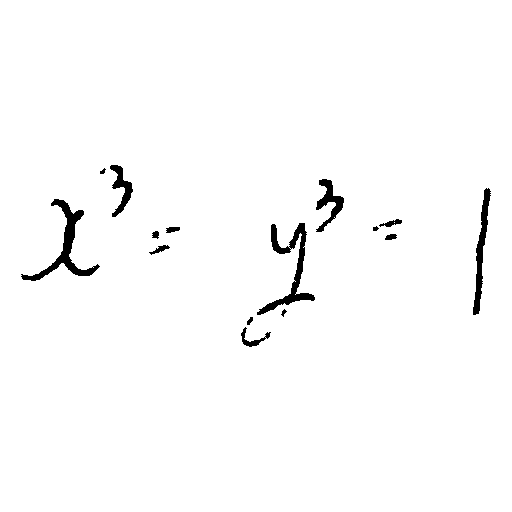 x³ = y³ = 1